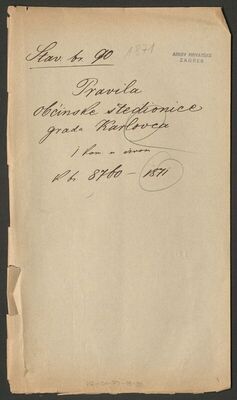 Stav br. 90
1871
ARHIV HRVATSKE
ZAGREB
Pravila
občinske štedionice
grada Karlovca
1 kom u
R br. 8760 – 1871